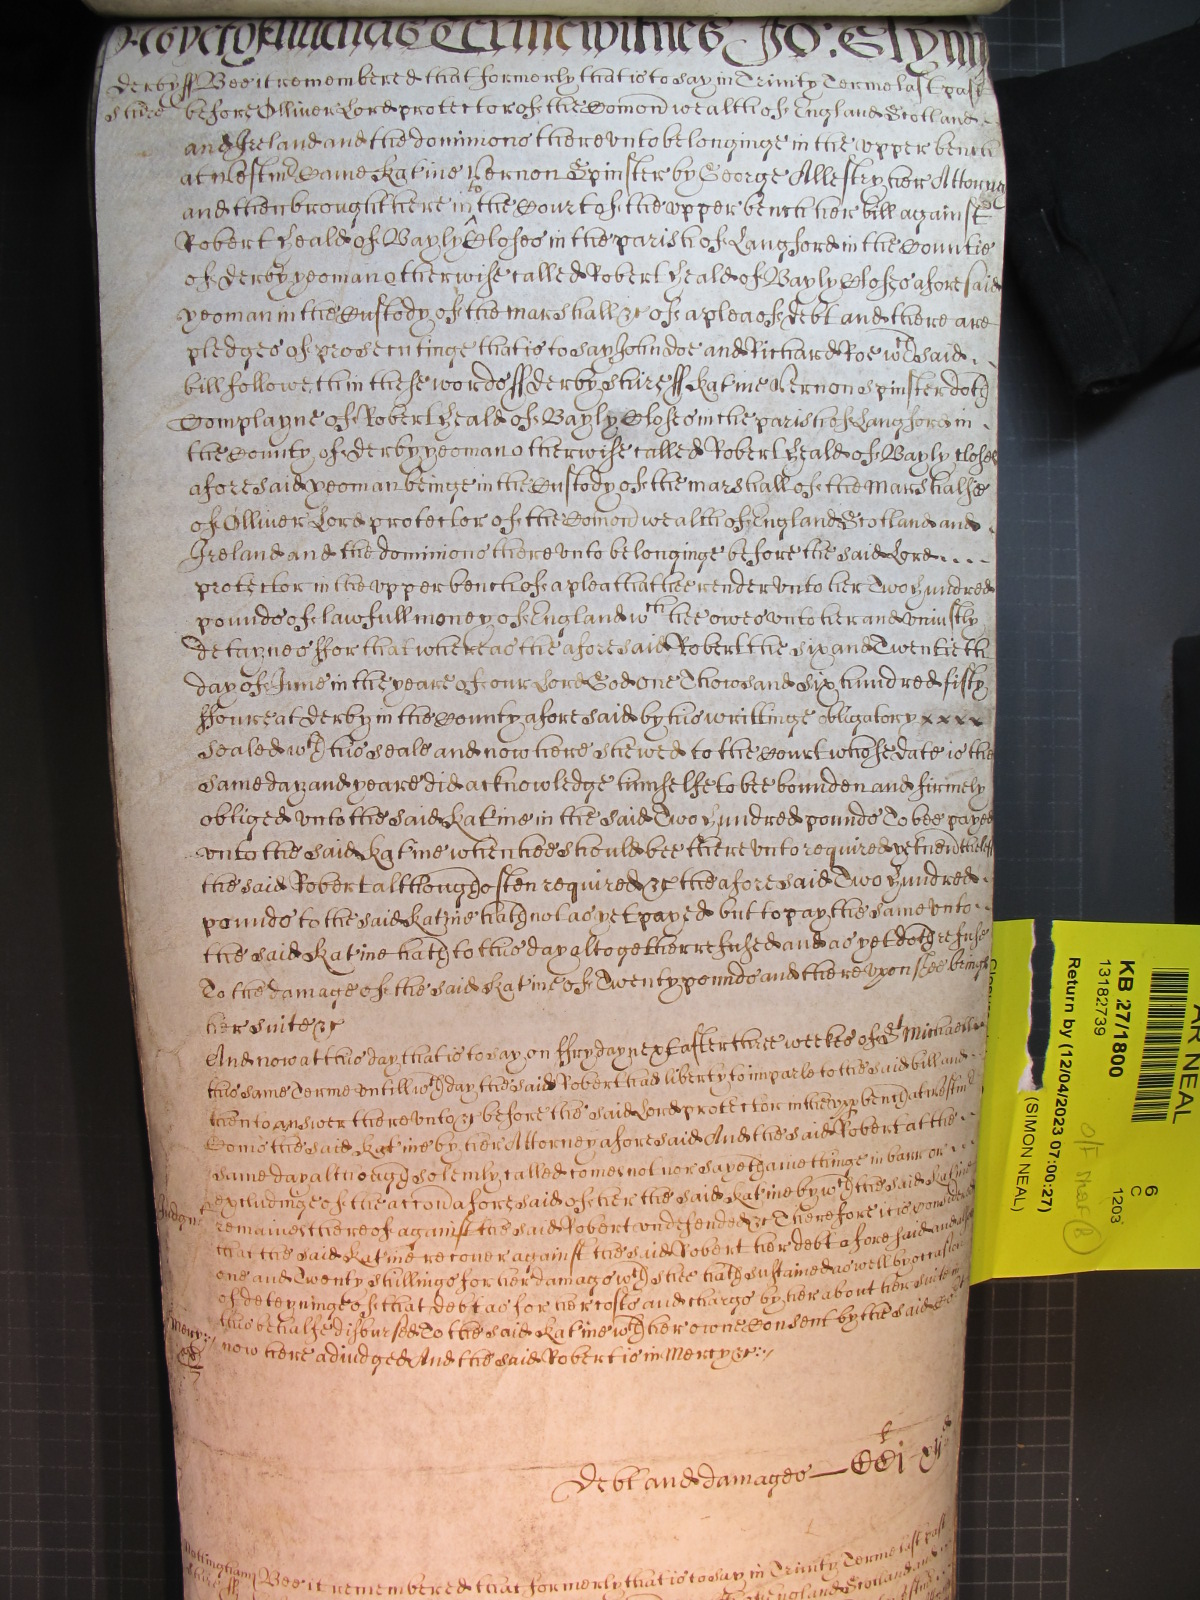 As yet of Michaelis Terme witnes Jo: Glynn
Derby ss Bee it remembered that formerly that is to say in Trinity Terme last past
shire before Olliver Lord protector of the Comonwealth of England Scotland
and Ireland and the dominions thereunto belonginge in the upper bench
at Westmr Came Katine Vernon Spinster by George Allestry her Attorny
and then brought here in to the Court of the upper bench her bill against
Robert Heald of Bayly Closes in the parish of Langford in the Countie
of Derby yeoman otherwise called Robert Heald of Bayly Closes aforesaid
yeoman in the Custody of the Marshall &c of a plea of debt and there are
pledges of prosecutinge that is to say John Doe and Richard Roe wch said
bill followeth in these words ss Derbyshire ss Katine Vernon Spinster doth
Complayne of Robert Heald of Bayly Closes in the parish of Langford in
the County of Derby yeoman otherwise called Robert Heald of Bayly Closes
aforesaid yeoman beinge in the Custody of the marshall of the Marshalse
of Olliver Lord protector of the Comonwealth of England Scotland and
Ireland and the dominions thereunto belonginge before the said Lord
protector in the upper bench of a plea that hee render unto her Two Hundred
pounds of lawfull money of England wch hee owes unto her and uniustly
detaynes ffor that whereas the aforesaid Robert the six and Twentieth
day of June in the yeare of our Lord God one Thowsand six hundred fifty
ffoure at Derby in the County aforesaid by his writtinge obligatory xxxx
sealed wth his seale and now here shewed to the Court whose date is the
same day and yeare did acknowledge himselfe to bee bounden and firmely
obliged unto the said Katine in the said Two Hundred pounds To bee payed
unto the said Katine when hee should bee thereunto required yet neverthelesse
the said Robert although often required &c the aforesaid Two Hundred
pounds to the said Katine hath not as yet payed but to pay the same unto
the said Katine hath to this day altogether refused and as yet doth refuse
To the damage of the said Katine of Twenty pounds and thereupon shee brings
her suite &c
And now at this day that is to say on ffryday next after three weekes of St Michaell in
this same Terme untill wch day the said Robert had liberty to imparle to the said bill and
then to answer thereunto &c before the said Lord protector in the upp bench at Westmr
Coms the said Katine by her Attorney aforesaid And the said Robert at the
same day although solemly called comes not nor sayeth anie thinge in barr or
excludinge of the accon aforesaid of her the said Katine by wch the said Katine
Judgmt remaines thereof against the said Robert undefended &c Therefore it is considered
that the said Katine recover against the said Robert her debt aforesaid and
one and Twenty shillings for her damages wch shee hath sustained as well by occasion
of deteyninge of that debt as for her costs and charges by her about her suite in
this behalfe disbursed To the said Katine wth her owne Consent by the said Court
Mercy: now here adiudged And the said Robert is in Mercy &c
Debt and damages — CCi li js
Nottingham Bee it remembered that formerly that is to say in Trinity Terme last past
shire ss England Scotland and
AR NEAL
KB 27/1800
13182739
Return by (12/04/2023 07:00:27)
(SIMON NEAL)
6
C
1203